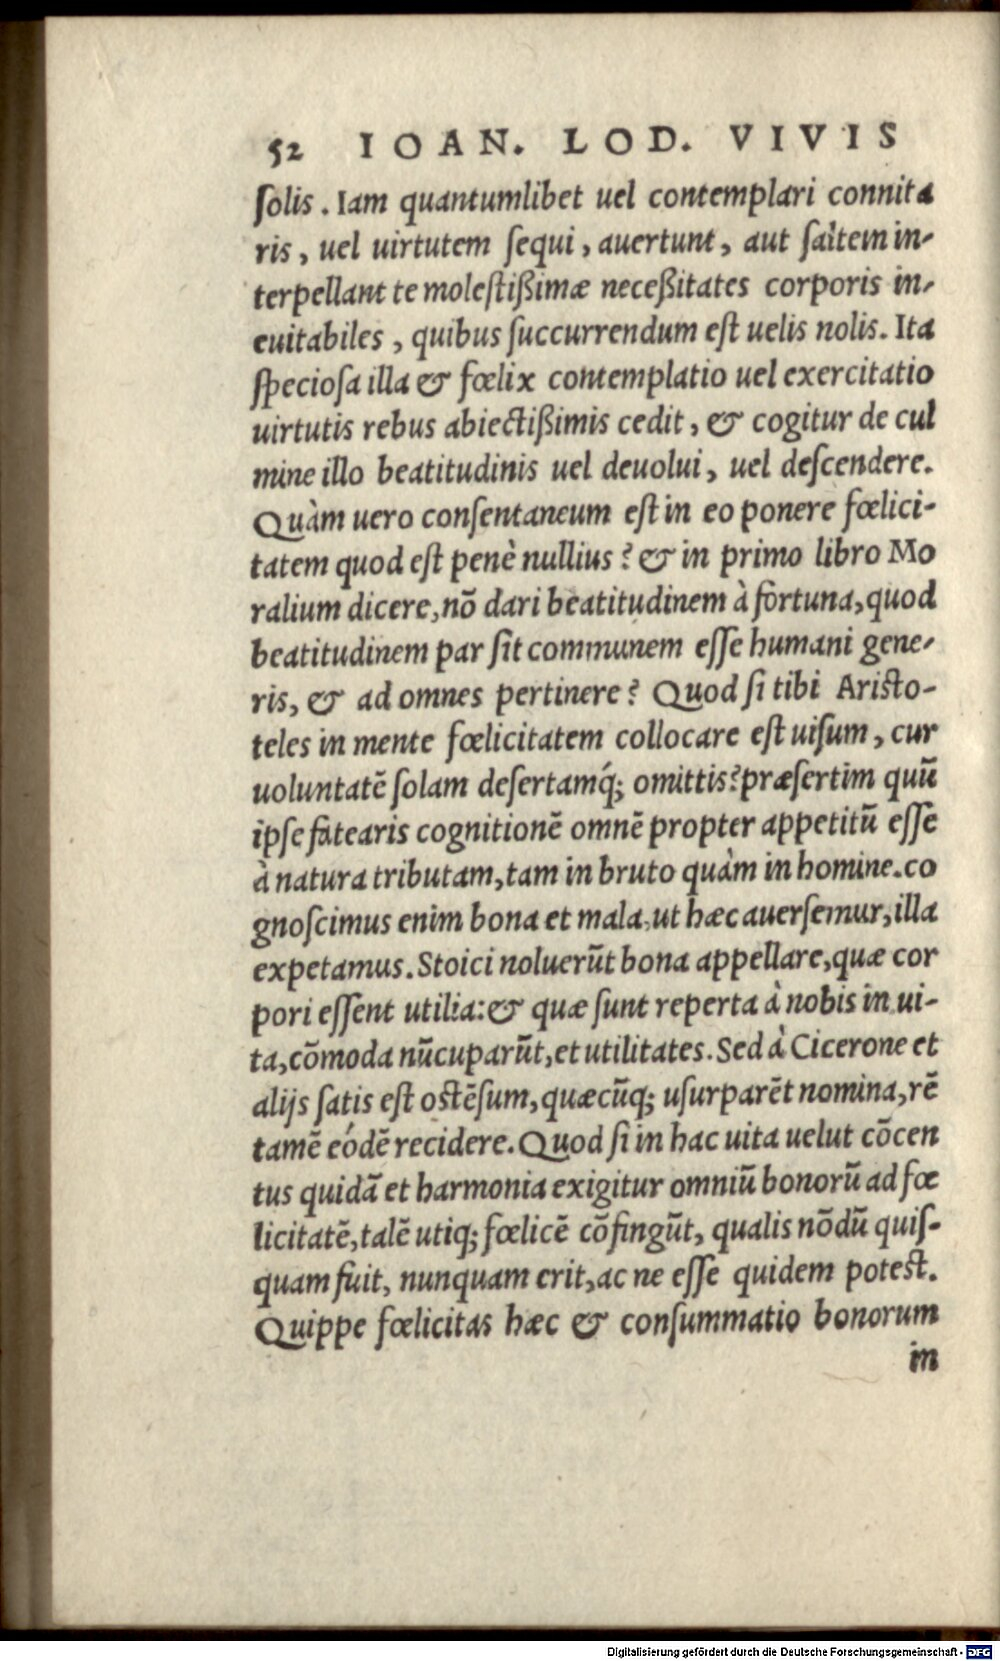 52 IOAN. LOD. VIVIS
ſolis. Iam quantumlibet uel contemplari connita
ris, uel uirtutem ſequi, auertunt, aut ſaltem in-
terpellant te moleſtißimæ neceßitates corporis in-
euitabiles, quibus ſuccurrendum eſt uelis nolis. Ita
ſpecioſa illa & fœlix contemplatio uel exercitatio
uirtutis rebus abiectißimis cedit, & cogitur de cul
mine illo beatitudinis uel deuolui, uel deſcendere.
Quàm uero conſentaneum eſt in eo ponere fœlici-
tatem quod eſt penè nullius? & in primo libro Mo
ralium dicere, nõ dari beatitudinem à fortuna, quod
beatitudinem par ſit communem eſſe humani gene-
ris, & ad omnes pertinere? Quod ſi tibi Ariſto-
teles in mente fœlicitatem collocare eſt uiſum, cur
uoluntatẽ ſolam deſertamq́; omittis? præſertim quũ
ipſe fatearis cognitionẽ omnẽ propter appetitũ eſſe
à natura tributam, tam in bruto quàm in homine. co
gnoſcimus enim bona et mala, ut hæc auerſemur, illa
expetamus. Stoici noluerũt bona appellare, quæ cor
pori eſſent utilia: & quæ ſunt reperta à nobis in ui-
ta, cõmoda nũcuparũt, et utilitates. Sed à Cicerone et
alijs ſatis eſt oſtẽſum, quæcũq; uſurparẽt nomina, rẽ
tamẽ eódẽ recidere. Quod ſi in hac uita uelut cõcen
tus quidã et harmonia exigitur omniũ bonorũ ad fœ
licitatẽ, talẽ utiq; fœlicẽ cõfingũt, qualis nõdũ quiſ-
quam fuit, nunquam erit, ac ne eſſe quidem poteſt.
Quippe fœlicitas hæc & conſummatio bonorum
in
Digitalisierung gefördert durch die Deutsche Forschungsgemeinschaft - DFG